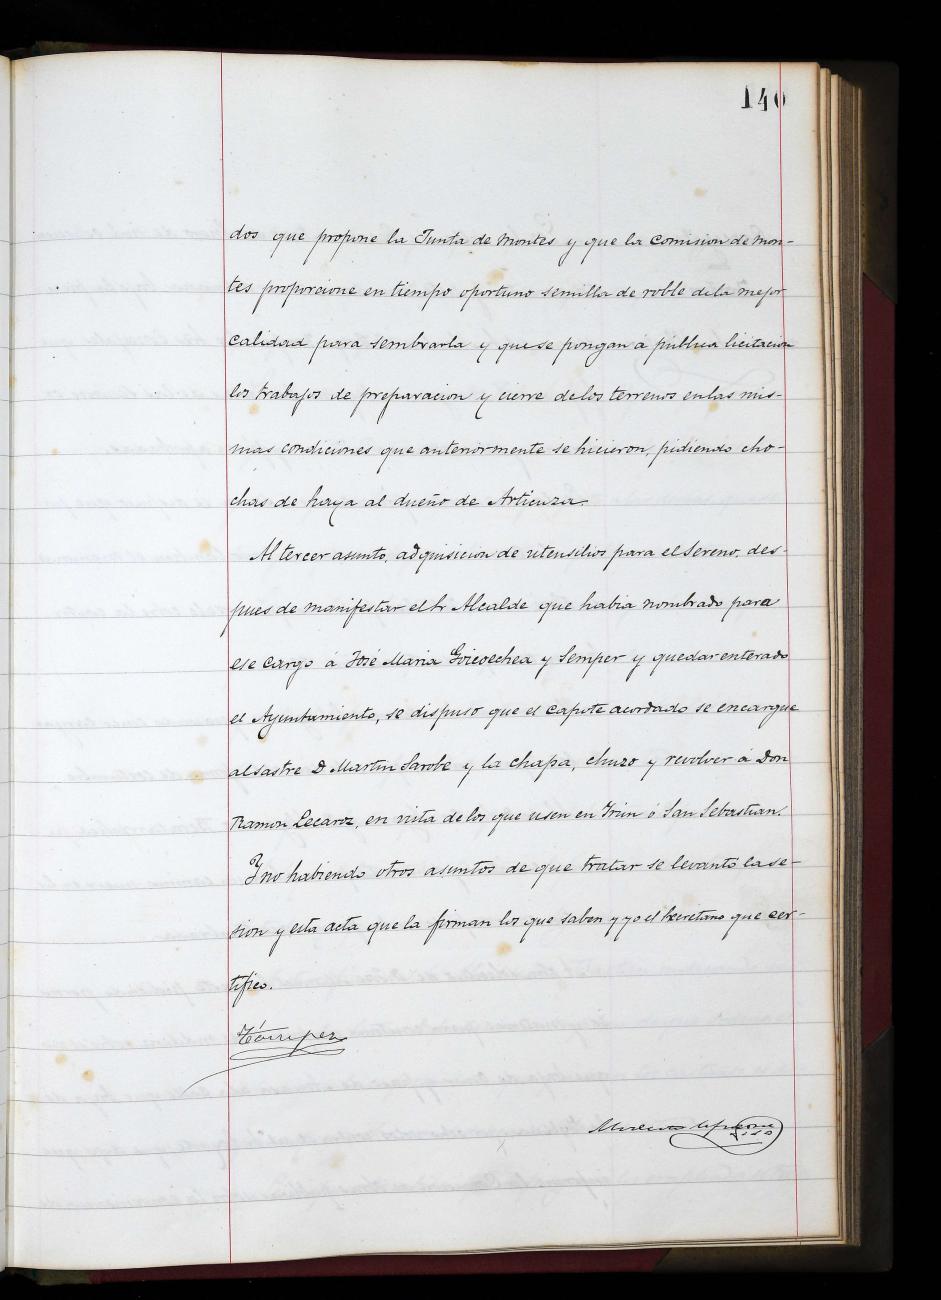 140
dos que propone la Junta de Montes y que la Comision de Mon-
tes proporcione en tiempo oportuno semilla de roble de la mejor
calidad para sembrarla y que se pongan á publica licitacion
los trabajos de preparacion y cierre de los terrenos en las mis-
mas condiciones que anteriormente se hicieron, pidiendo cho-
chas de haya al dueño de Articuza.
Al tercer asunto, adquisicion de utensilios para el Sereno, des-
pues de manifestar el Sr Alcalde que habia nombrado para
ese cargo á José Maria Goicoechea y Semper y quedar enterado
el Ayuntamiento, se dispuso que el capote acordado se encargue
al sastre D Martin Sarobe y la chapa, chuzo y revolver á Don
Ramon Lecaroz, en vista de los que usen en Irún ó San Sebastian.
Y no habiendo otros asuntos de que tratar se levantó la se-
sion y esta acta que la firman los que saben y yo el Secretario que cer-
tifico.